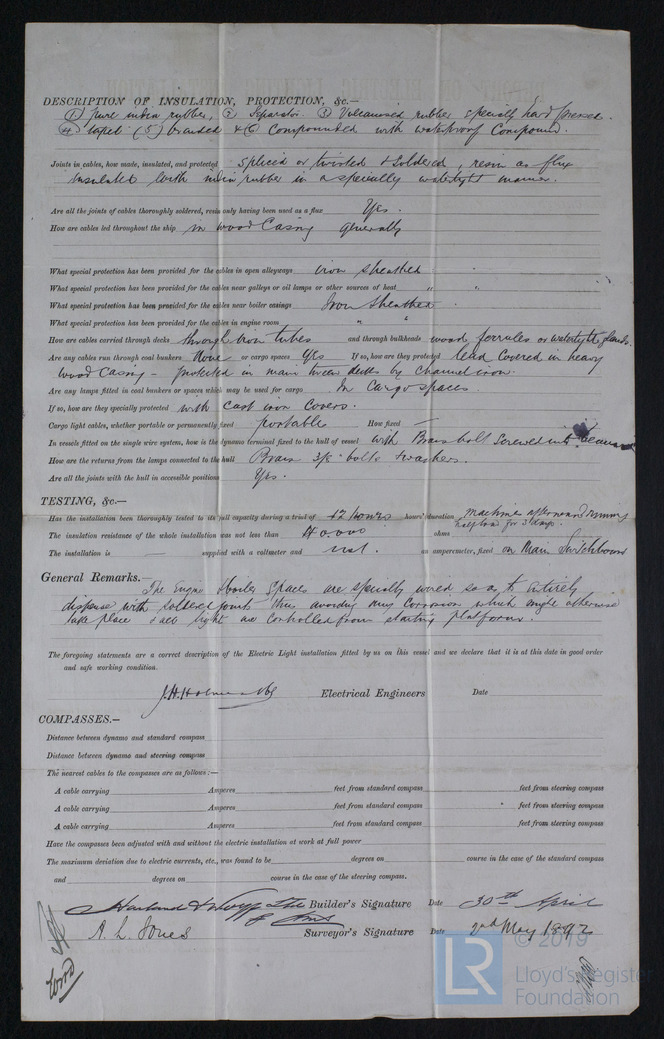 DESCRIPTION OF INSULATION, PROTECTION, &c.—
(1) Pure india rubber, (2) Separator (3) Vulcanised rubber specially hard pressed.
(4) taped (5) braided & (6) Compounded with waterproof Compound.
Joints in cables, how made, insulated, and protected spliced or twisted & Soldered, resin as flux
insulated with india rubber in a specially watertight manner.
Are all the joints of cables thoroughly soldered, resin only having been used as a flux Yes.
How are cables led throughout the ship in wood Casing generally
What special protection has been provided for the cables in open alleyways iron sheathed
What special protection has been provided for the cables near galleys or oil lamps or other sources of heat " "
What special protection has been provided for the cables near boiler casings Iron Sheathed
What special protection has been provided for the cables in engine room " "
How are cables carried through decks through iron tubes and through bulkheads wood ferrules or watertight glands.
Are any cables run through coal bunkers None or cargo spaces Yes If so, how are they protected lead Covered in heavy
wood Casing - protected in main tween decks by Channel iron.
Are any lamps fitted in coal bunkers or spaces which may be used for cargo In Cargo spaces.
If so, how are they specially protected with Cast iron Covers.
Cargo light cables, whether portable or permanently fixed portable How fixed —
In vessels fitted on the single wire system, how is the dynamo terminal fixed to the hull of vessel with Brass bolt Screwed into beams
How are the returns from the lamps connected to the hull Brass 3/8" bolts & washers.
Are all the joints with the hull in accessible positions Yes.
TESTING, &c.—
Has the installation been thoroughly tested to its full capacity during a trial of 12 hours hours' duration machine afterward running
half load for 3 days.
The insulation resistance of the whole installation was not less than 40,000 ohms
The installation is — supplied with a voltmeter and not. an amperemeter, fixed on Main Switchboard
General Remarks.— The Engine & boiler Spaces are specially wired so as to entirely
dispense with soldered joints thus avoiding any Corrosion which might otherwise
take place & all light are Controlled from starting platform.
The foregoing statements are a correct description of the Electric Light installation fitted by us on this vessel and we declare that it is at this date in good order
and safe working condition.
J. H. Holmes & Co Electrical Engineers Date
COMPASSES.—
Distance between dynamo and standard compass
Distance between dynamo and steering compass
The nearest cables to the compasses are as follows :—
A cable carrying Amperes feet from standard compass feet from steering compass
A cable carrying Amperes feet from standard compass feet from steering compass
A cable carrying Amperes feet from standard compass feet from steering compass
Have the compasses been adjusted with and without the electric installation at work at full power
The maximum deviation due to electric currents, etc., was found to be degrees on course in the case of the standard compass
and degrees on course in the case of the steering compass.
Harland & Wolff Ltd Builder's Signature Date 30th April
A. L. Jones Surveyor's Signature Date 2nd May 1892
© 2019
LR Lloyd's Register
Foundation